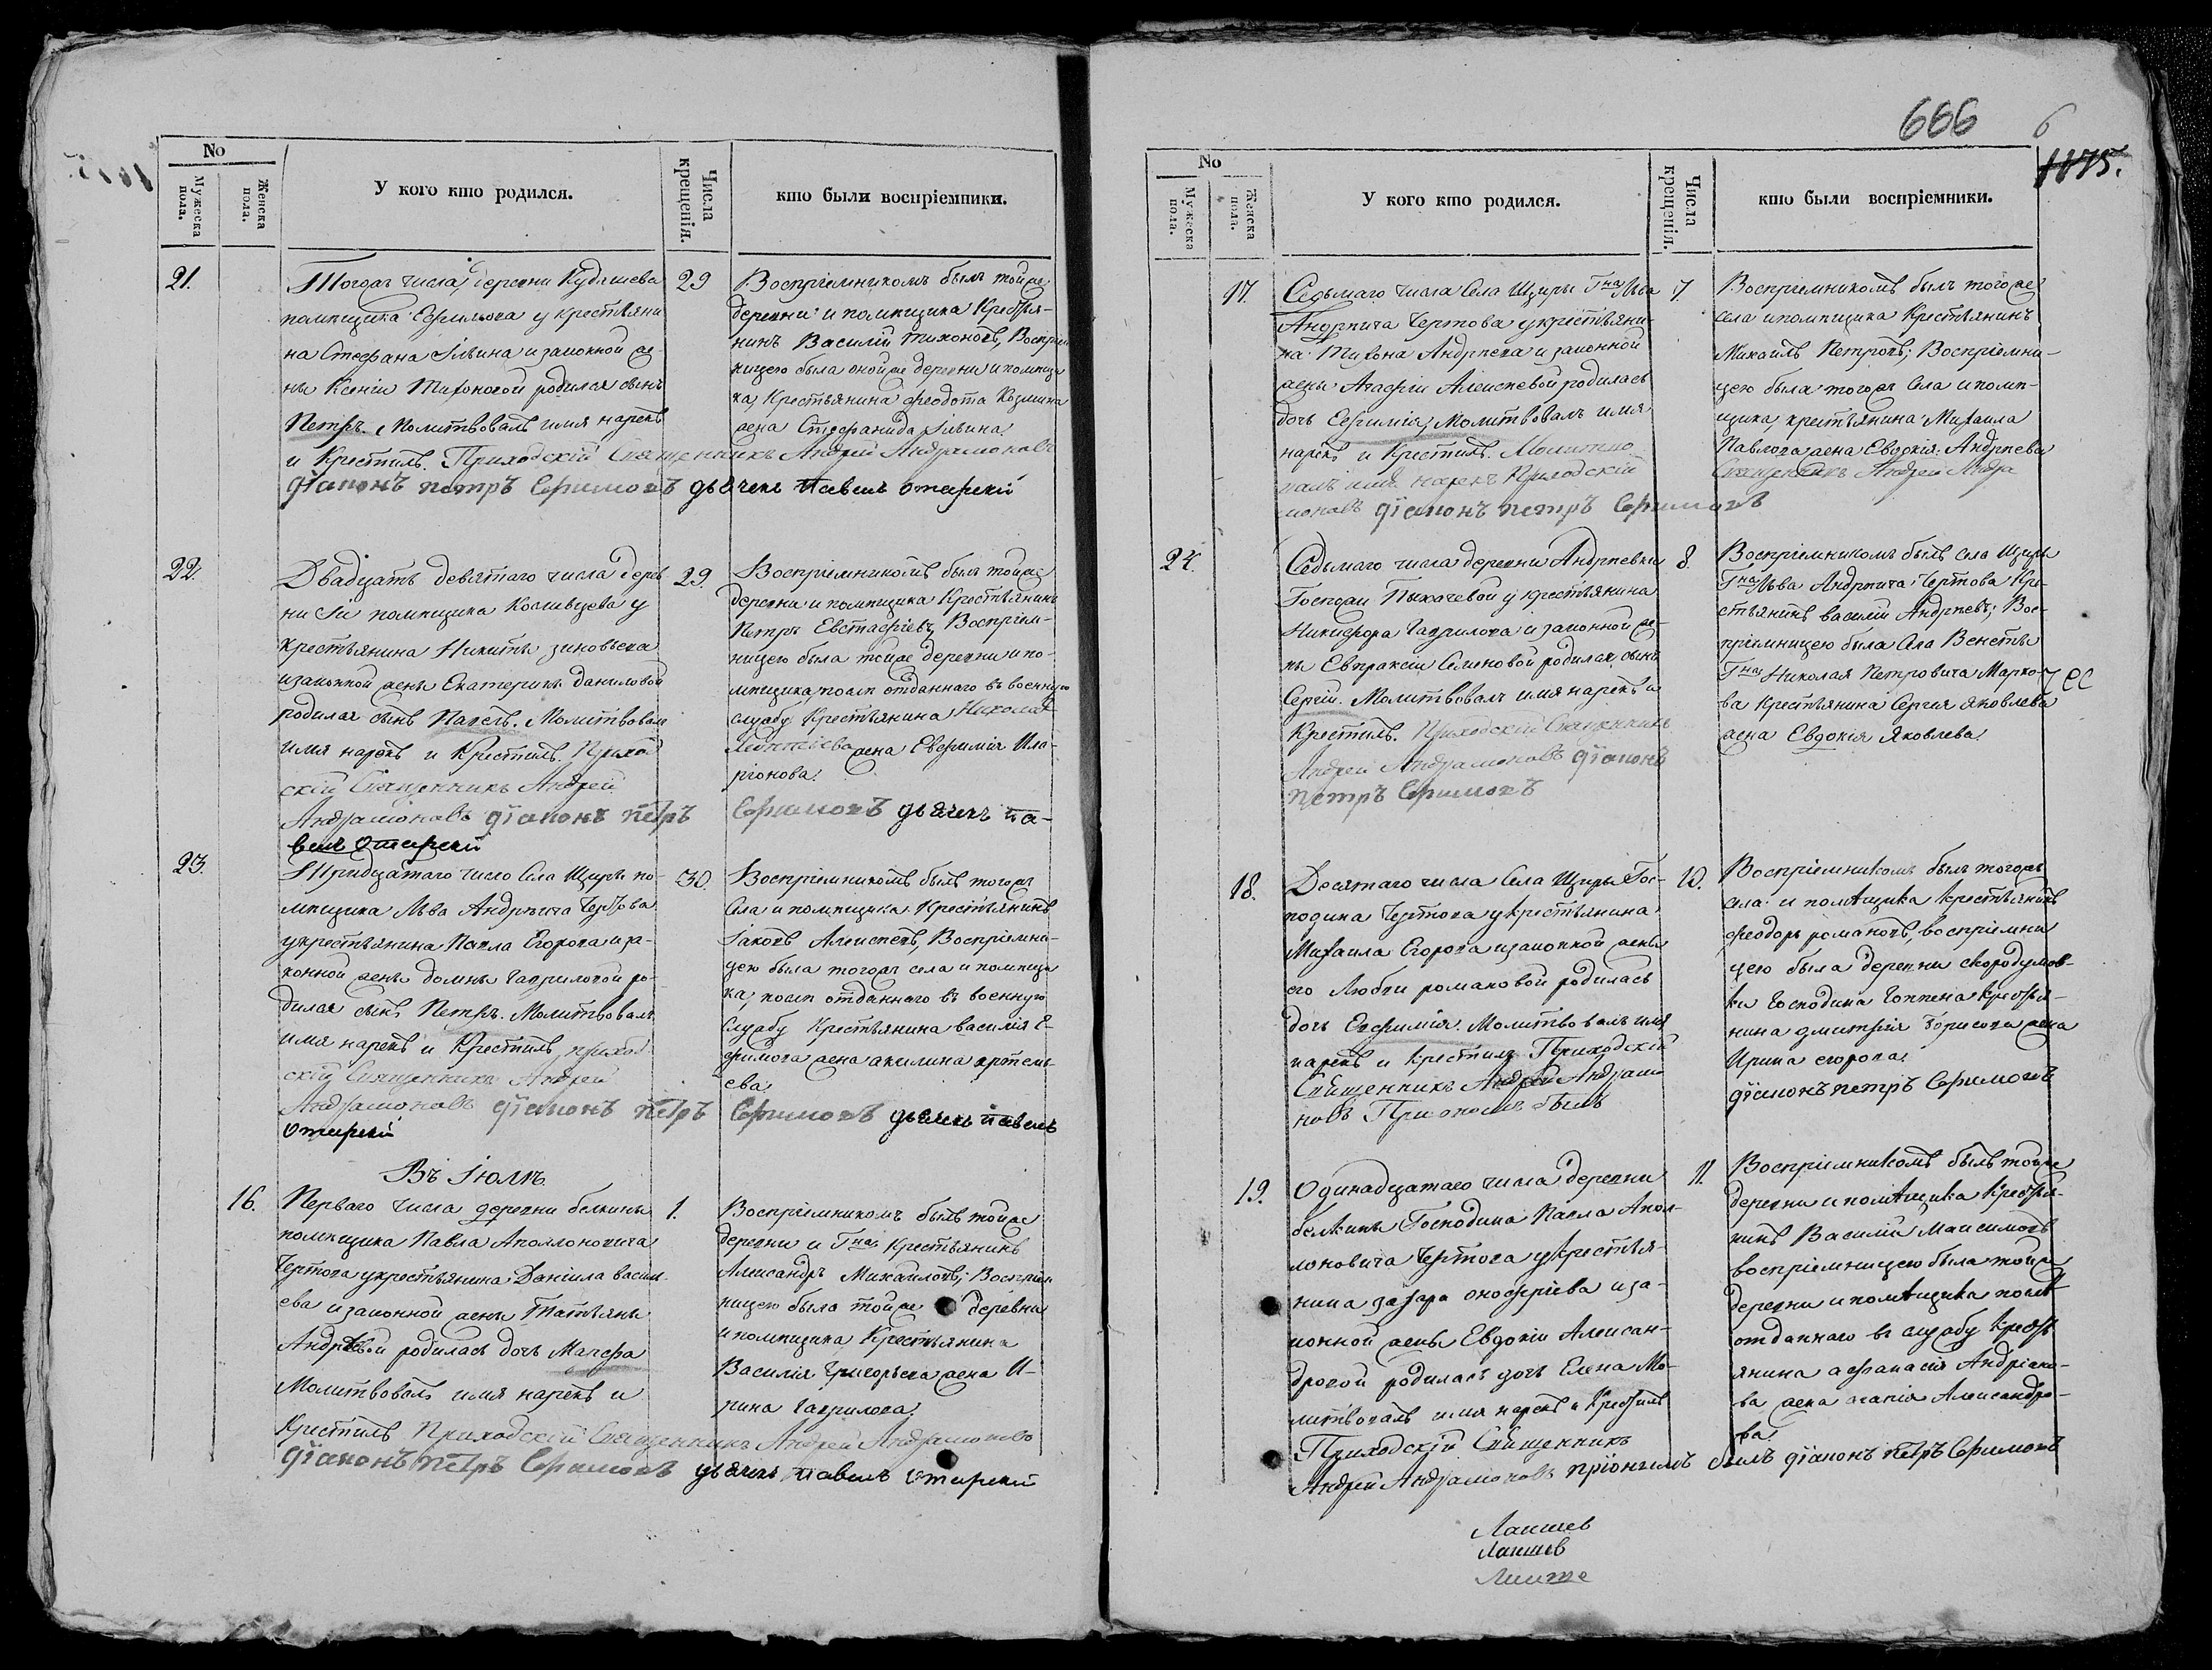 No
Мужеска пола.
Женска пола.
У кого кто родился.
Числа крещенія.
кто были воспріемники.
21.
Тогожъ числа, деревни Кудашева
помѣщика у крестьяни
на Стефана Ильина и законной же
ны Ксеніи Тихоновой родился сынъ
Петръ. Молитвовалъ имя нарекъ
и Крестилъ. Приходскій Священникъ Андрей Андріановъ
діаконъ петръ Ефимовъ дьячекъ павелъ
29
Воспріемникомъ былъ тойже
деревни и помѣщика Крестья-
нинъ Василій Тихоновъ, Воспріем
ницею была оной же деревни и помѣщи
ка, Крестьянина Феодота Козмина
жена Стефанида Ильина.
22.
Двадцать девятаго числа дерев
ни помѣщика у
Крестьянина Никиты Зиновьева
и законной жены Екатерины Даниловой
родился сынъ Павелъ. Молитвовалъ
имя нарекъ и Крестилъ. Приход
скій Священникъ Андрей
Андріановъ діаконъ петръ Ефимовъ дьячекъ па-
велъ
29.
Воспріемникомъ былъ тойже
деревни и помѣщика Крестьянинъ
Петръ Евстафіевъ, Воспріем-
ницею была тойже деревни и по-
мѣщика, послѣ отданнаго въ военную
службу Крестьянина Николая
жена Евфимія Ила-
ріонова.
23.
Тридцатаго число Села Щиры по-
мѣщика Льва Андрѣича Чертова
у крестьянина Павла Егорова и за-
конной жены Домны Гавриловой ро-
дился сынъ Петръ. Молитвовалъ
имя нарекъ и Крестилъ приход
скій Священникъ Андрей
Андріановъ діаконъ петръ Ефимовъ дьячекъ павелъ
30.
Воспріемникомъ былъ тогожъ
Села и помѣщика Крестьянинъ
Іаковъ Алексѣевъ, Воспріемни-
цею была тогожъ села и помѣщи
ка, послѣ отданнаго въ военную
Службу Крестьянина василія Е-
фимова жена акилина артемь-
ева
Въ Іюлѣ.
16.
Перваго числа деревни белкины
помѣщика Павла Аполлоновича
Чертова у крестьянина Даніила васил-
ева и законной жены Татьяны
Андрѣевой родилась дочь Маѳра
Молитвовалъ имя нарекъ и
Крестилъ Приходскій Священникъ Андрей Андріановъ
діаконъ петръ Ефимовъ дьячекъ павелъ
1.
Воспріемникомъ былъ тойже
деревни и Гна Крестьянинъ
Александръ Михайловъ; Воспріем
ницею была тойже деревни
и помѣщика Крестьянина
Василія Григорьева жена И-
рина Гаврилова.
666
6
1175.
No
Мужеска пола.
Женска пола.
У кого кто родился.
Числа крещенія.
кто были воспріемники.
17.
Седьмаго числа Села Щиры Гна Льва
Андрѣича Чертова у крестьяни-
на Тихона Андрѣева и законной
жены Агафіи Алексѣевой родилась
дочь Ефимія, Молитвовалъ имя
нарекъ и Крестилъ. Молитво
валъ имя нарекъ Приходскій
Священникъ Андрей Андра
моновъ діаконъ петръ Ефимовъ
7.
Воспріемникомъ былъ тогоже
села и помѣщика Крестьянинъ
Михаилъ Петровъ; Воспріемни-
цею была тогожъ Села и помѣ-
щика, крестьянина Михаила
Павлова жена Евдокія Андрѣева
24.
Седьмаго числа деревни Андрѣевки
Госпожи Пыхачевой у крестьянина
Никифора Гаврилова и законной же-
ны Евпраксіи Семеновой родился сынъ
Сергій. Молитвовалъ имя нарекъ и
Крестилъ. Приходскій Священникъ
Андрей Андрамоновъ діаконъ
петръ Ефимовъ
8.
Воспріемникомъ былъ села Щиры
Гна Льва Андрѣича Чертова Кре-
стьянинъ василій Андрѣевъ; Вос-
пріемницею была Села Венсты
Гна Николая Петровича Марко-
ва Крестьянина Сергія Яковлева
жена Евдокія Яковлева.
18.
Десятаго числа Села Щиры Гос-
подина Чертова у крестьянина
Михаила Егорова и законной жены
его Любви романовой родилась
дочь Евфимія. Молитвовалъ имя
нарекъ и Крестилъ Приходскій
Священникъ Андрей Андрамо
новъ При ономъ былъ
діаконъ петръ Ефимовъ
10.
Воспріемникомъ былъ тогожъ
села и помѣщика крестьянинъ
феодоръ романовъ, воспріемни
цею была деревни скородумов-
ки Господина крестья-
нина дмитрія Борисова жена
Ирина егорова.
19.
Одинадцатаго числа деревни
белкины Господина Павла Апол-
лоновича Чертова у крестья-
нина захара онофріева и за-
конной жены Евдокіи Алексан-
дровой родилась дочь Елена Мо-
литвовалъ имя нарекъ и Крестилъ
Приходскій Священникъ
Андрей Андрамоновъ пріономъ былъ діаконъ петръ Ефимовъ
11.
Воспріемникомъ былъ тойже
деревни и помѣщика Крестья-
нинъ Василій Максимовъ
воспріемницею была тойже
деревни и помѣщика послѣ
отданнаго въ службу крестъ
янина афанасія Андріано-
ва жена Александро-
ва.